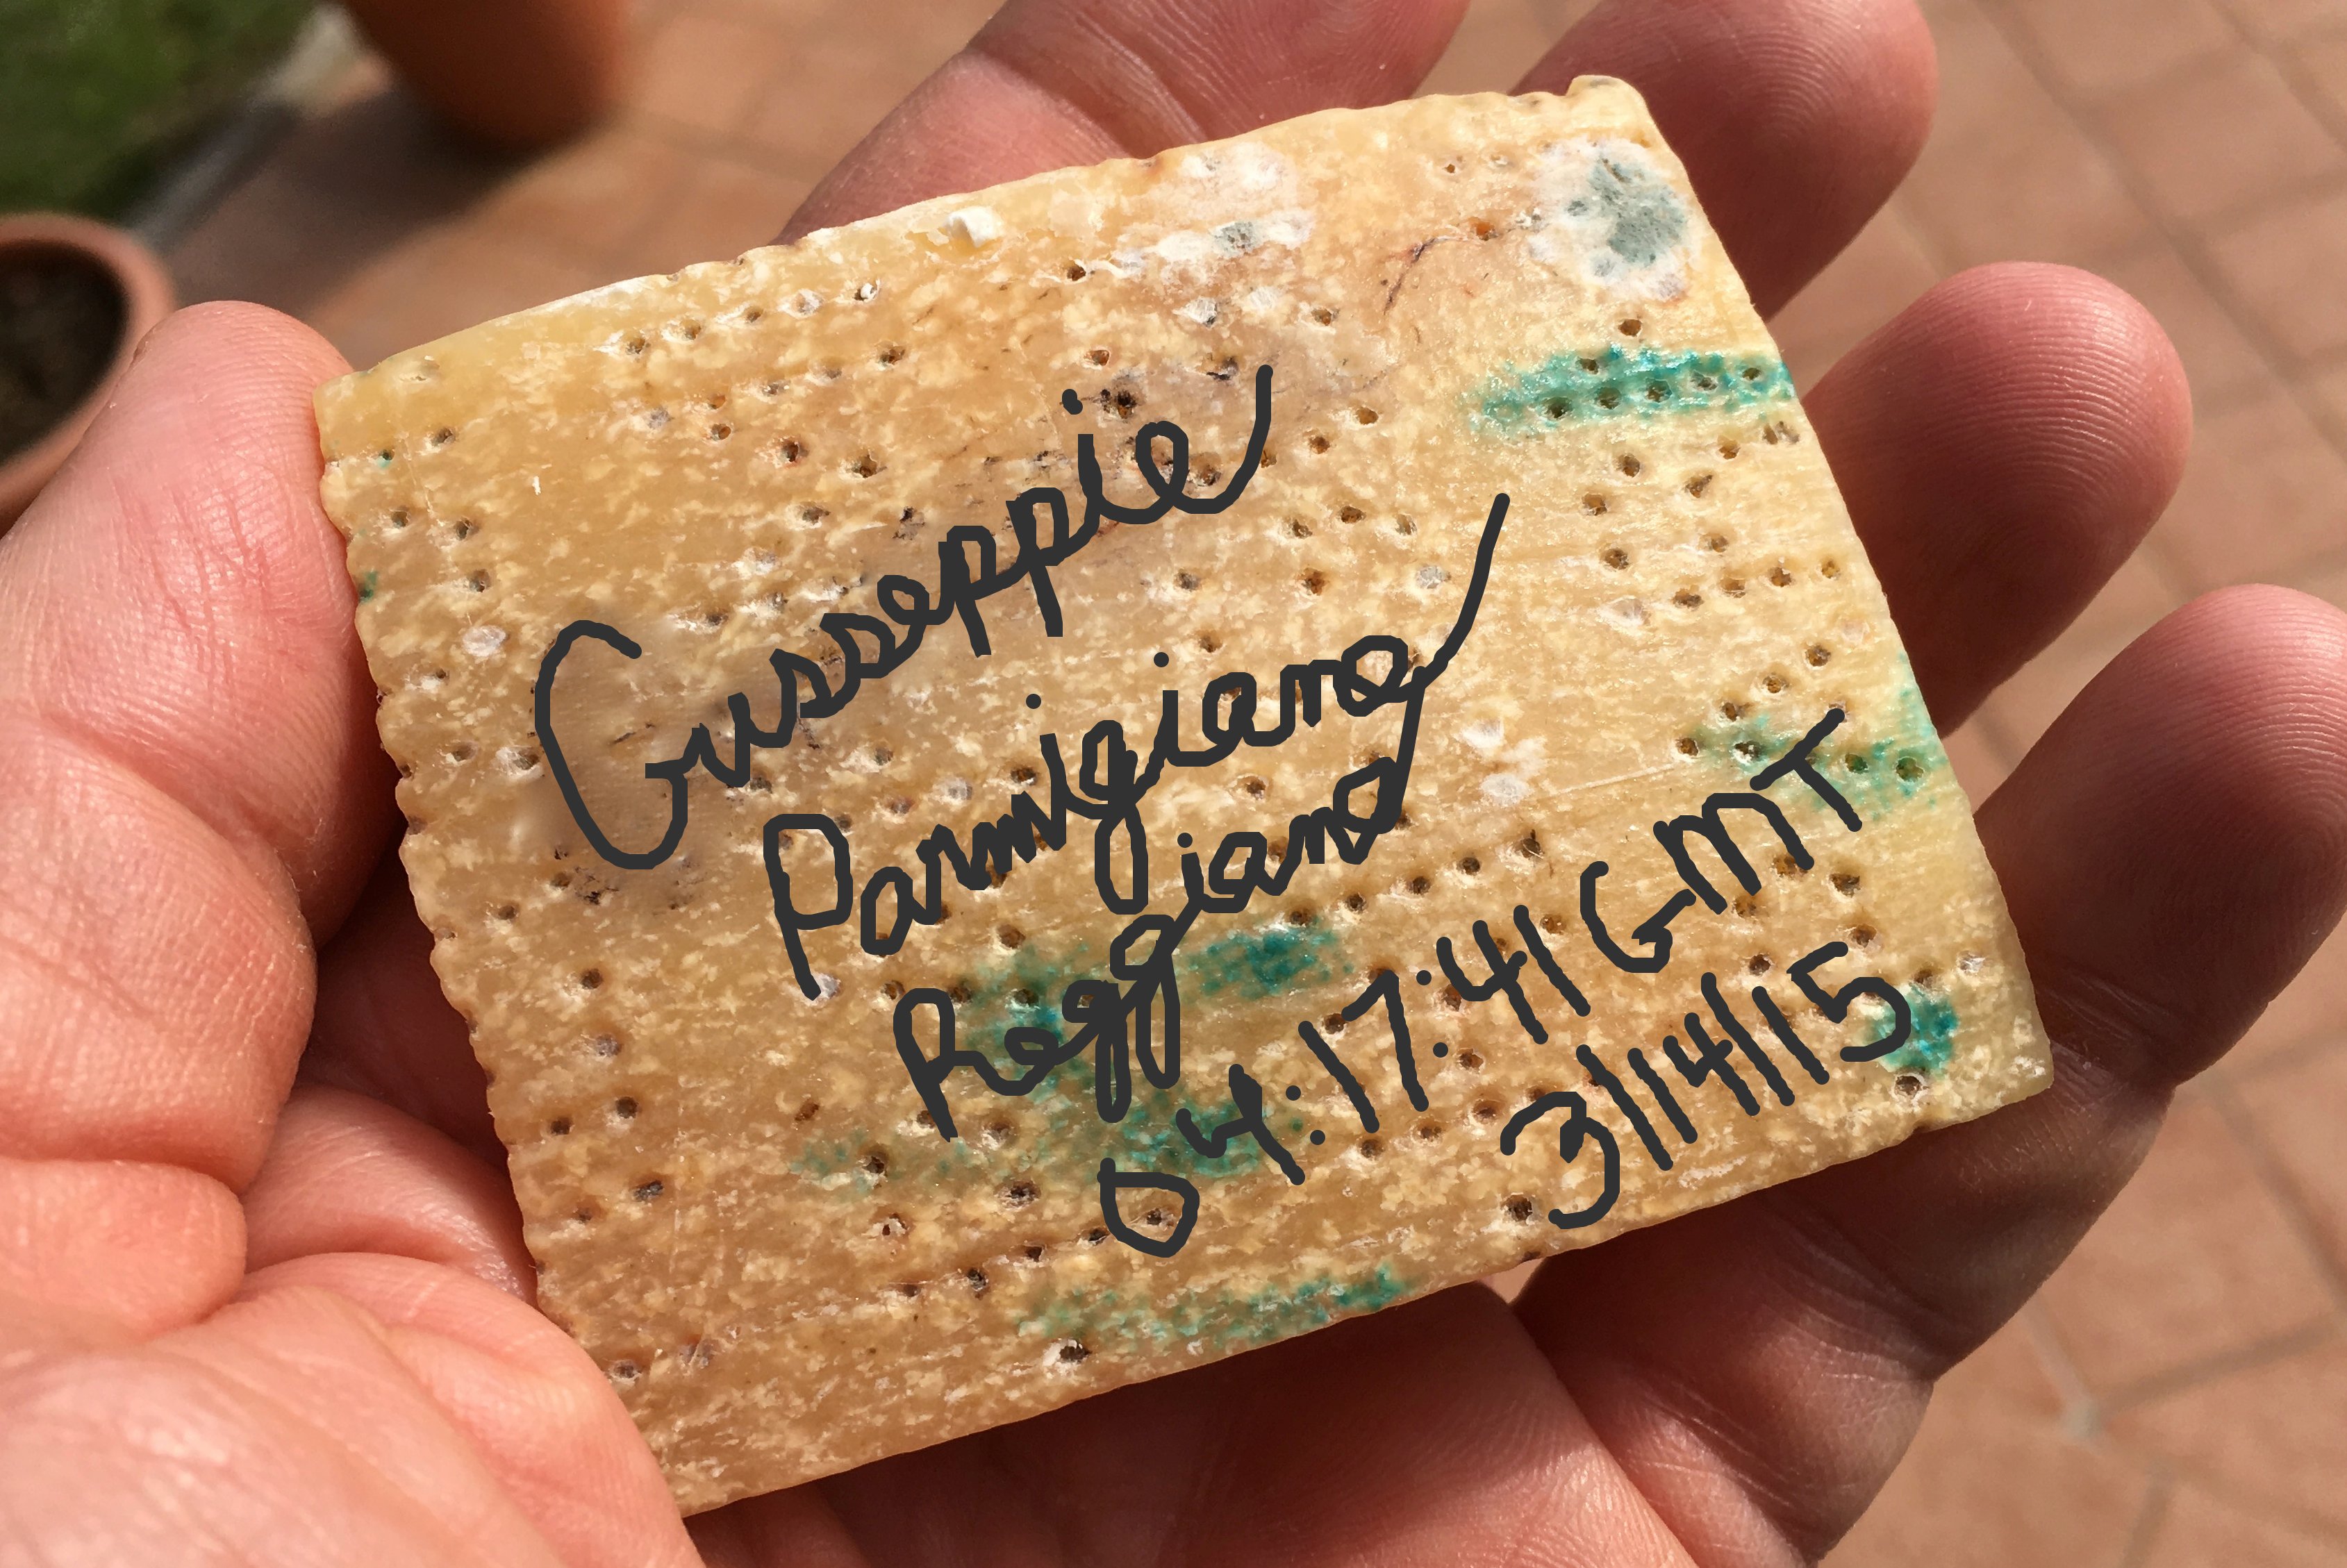 Gusseppie
Parmigiano
Reggiano
04:17:41 GMT
3/14/15